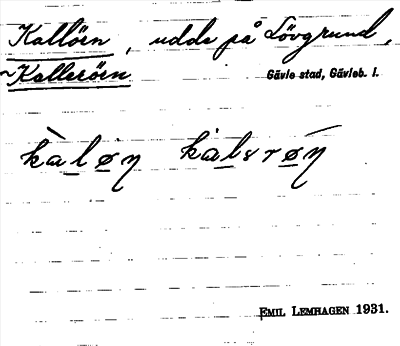 Kallörn, udde på Lövgrund,
~Kallerörn Gävle stad, Gävleb. l.
kàlön kàlsrön
EMIL LEMHAGEN 1931.